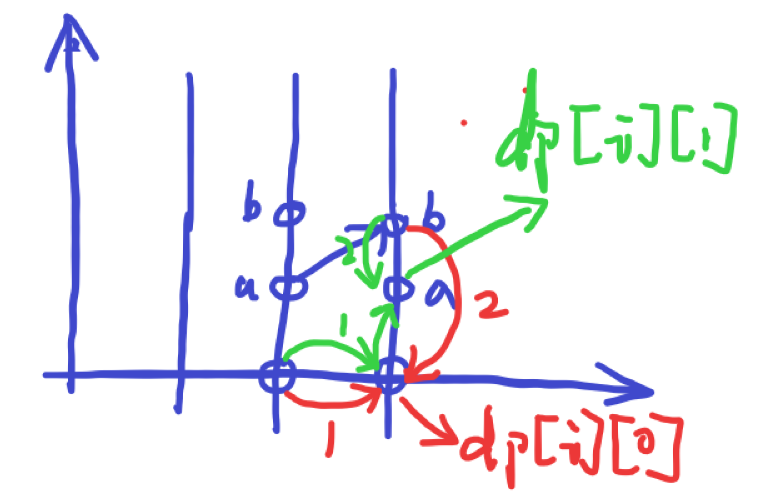 dp[i][1]
b
b
2
a
a
2
1
1
dp[i][0]